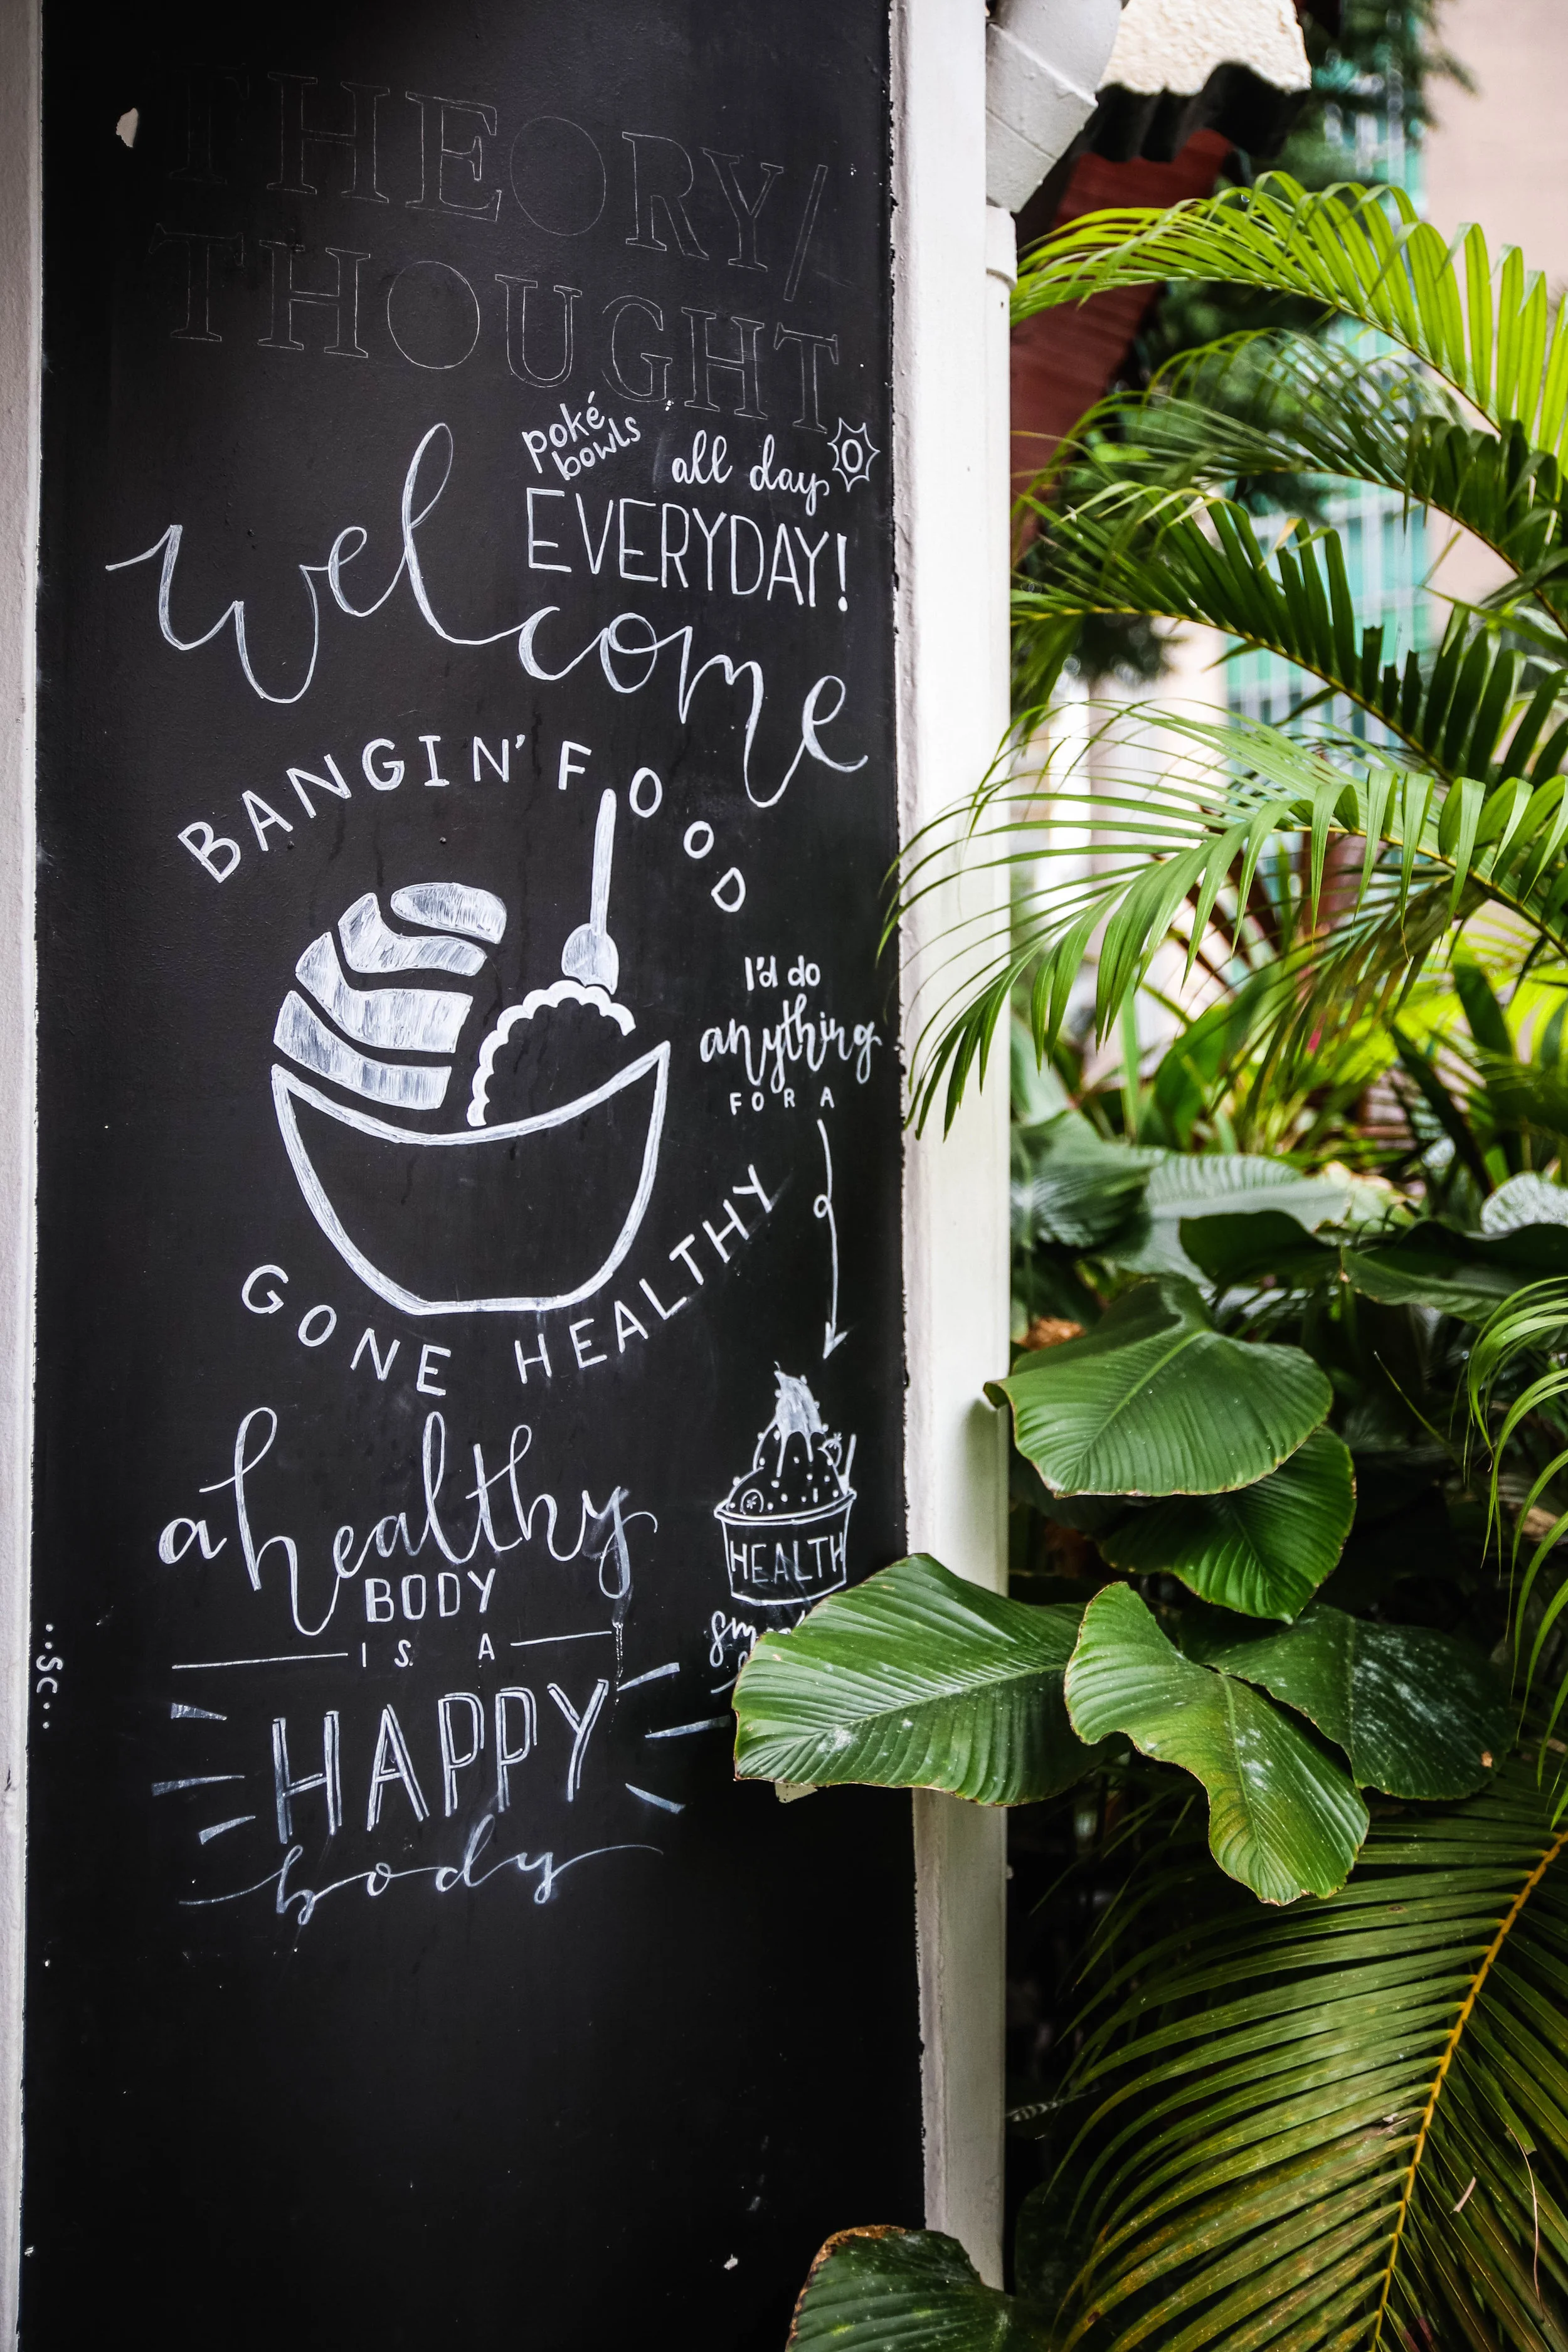 THEORY/
THOUGHT
poké
bowls
all day
EVERYDAY!
welcome
BANGIN' FOOD
I'd do
anything
FOR A
GONE HEALTHY
HEALTH
a healthy
BODY
IS A
HAPPY
body
..SC..